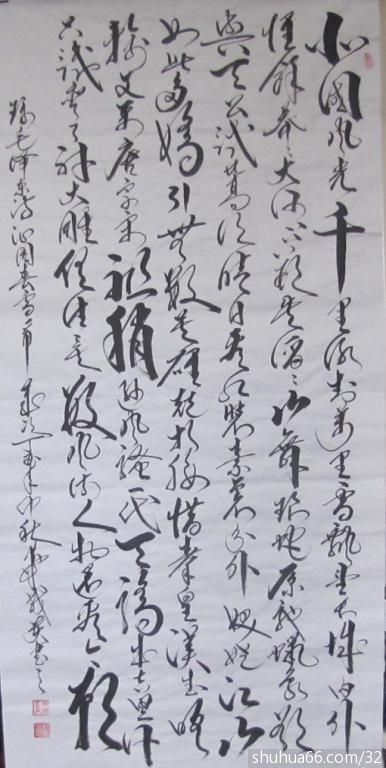 北國風光千里冰封萬里雪飄望长城内外
惟餘莽大河上下頓失滔滔山舞银蛇原驰蠟象欲
與天公試比高须晴日看红装素裹分外妖娆江山
如此多嬌引無数英雄競折腰惜秦皇漢武略
輸文采唐宗宋祖稍逊风骚一代天驕成吉思汗
只識弯弓射大雕俱往矣数风流人物还看今朝
毛泽东詩沁園春雪一首 年中秋 書之
shuhua66.com/32